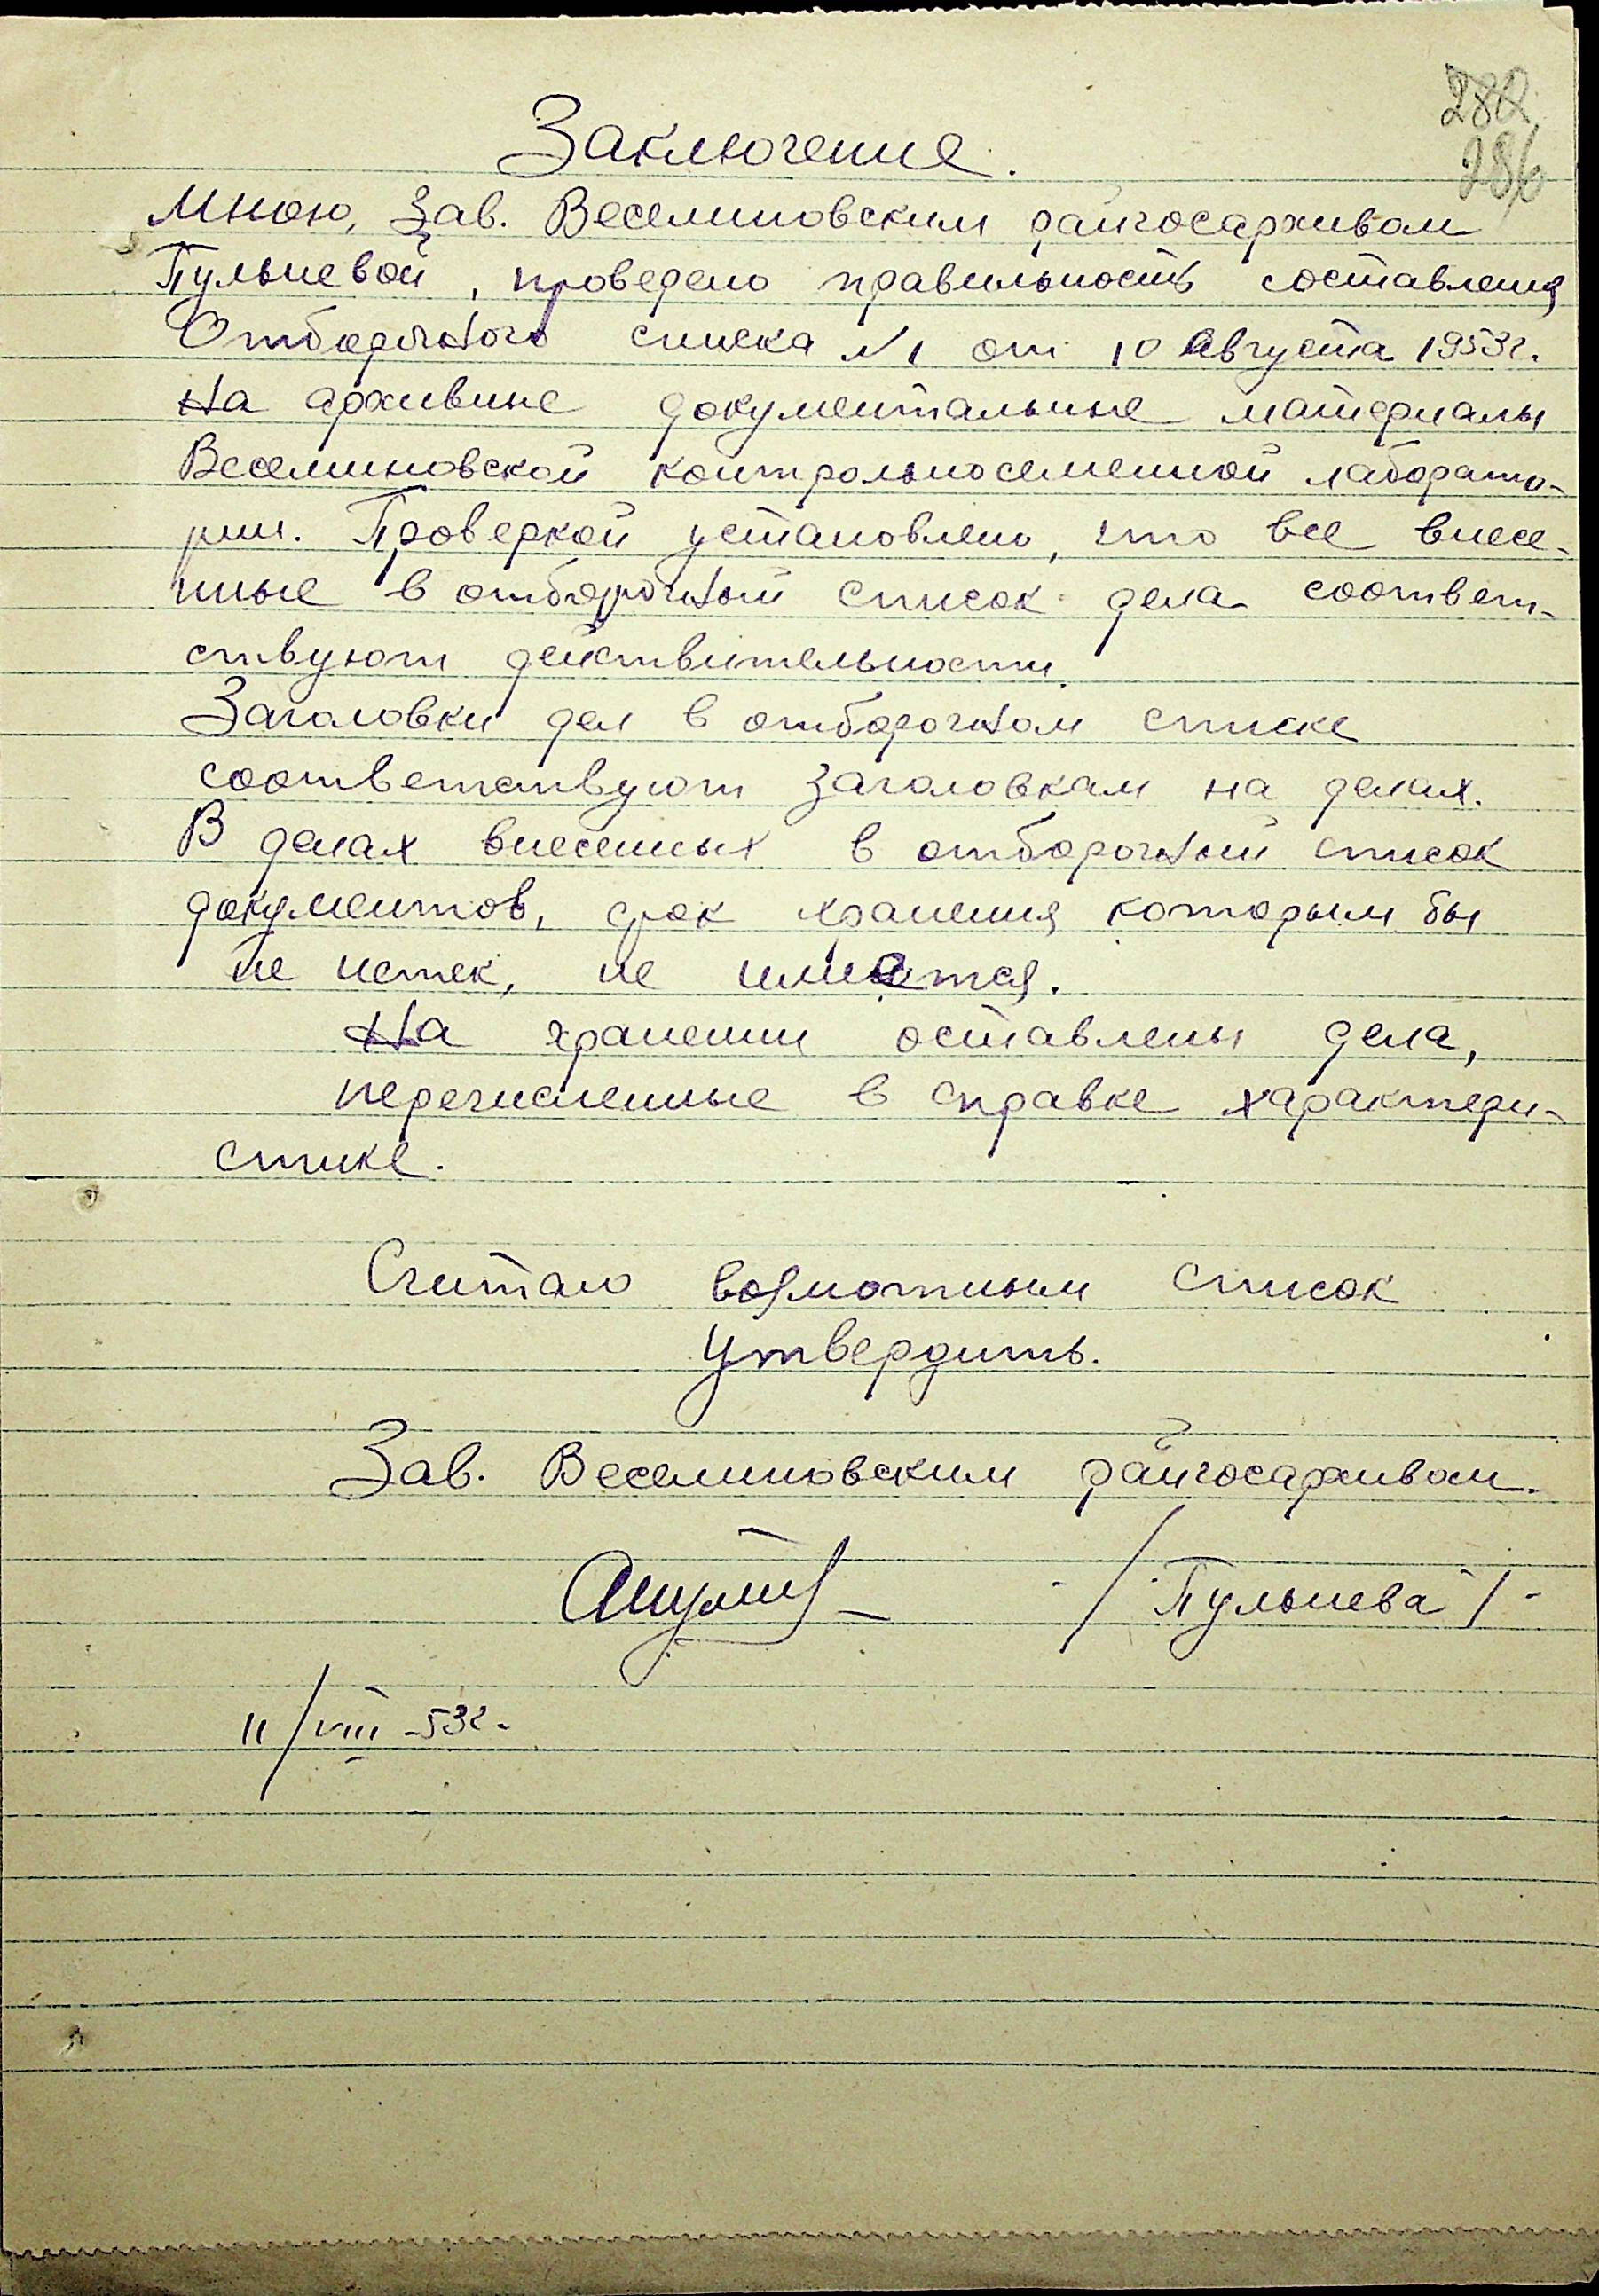 282
286
Заключение.
Мною, Зав. Веселиновским райгосархивом
Пульневой, проведено правильность составления
Отборочного списка №1 от 10 августа 1953г.
На архивные документальные материалы
Веселиновской контрольносеменной лаборато-
рии. Проверкой установлено, что все внесе-
нные в отборочный список дела соответ-
ствуют действительности.
Заголовки дел в отборочном списке
соответствуют заголовкам на делах.
В делах внесенных в отборочный список
документов, срок хранения которым бы
не истек, не имеется.
На хранении оставлены дела,
перечисленные в справке характери-
стике.
Считаю возможным список
утвердить.
Зав. Веселиновским райгосархивом.
/Пульнева/
11/VIII-53г.